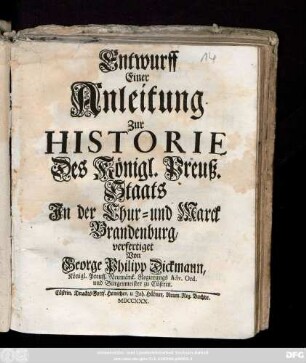 14
Entwurff
Einer
Anleitung
Zur
HISTORIE
Des Königl. Preuß.
Staats
In der Chur- und Marck
Brandenburg,
verfertiget
Von
George Philipp Dickmann,
Königl. Preuß. Neumärck. Regierungs Adv. Ord.
und Bürgermeister zu Cüstrin.
Cüstrin, Joh. Hübner, Neum. Reg. Buchdr.
MDCCXXX.